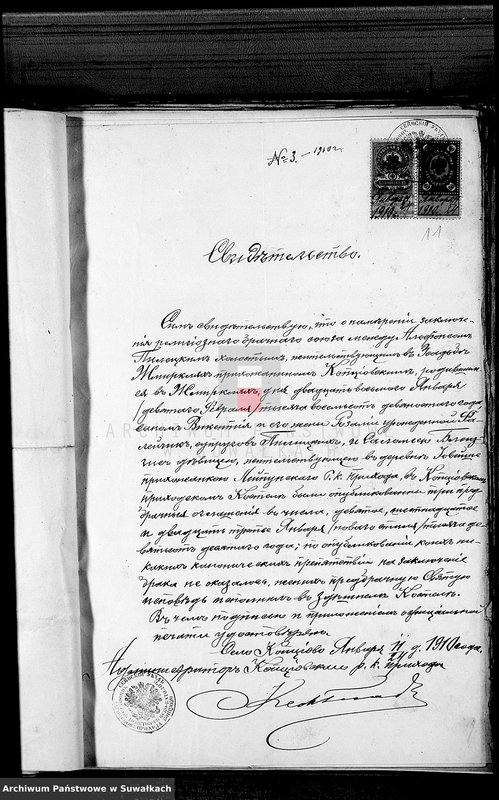 № 3. – 1910 г.
11
Свидѣтельство.
Симъ свидѣтельствую, что о намѣреніи заключе-
нія религіознаго брачнаго союза между Альфонсомъ
холостымъ, жительствующимъ въ
прихожаниномъ Копціовскимъ, родившим-
ся въ дня двадцать восьмого Января
/девятаго Февраля/ тысяча восемьсотъ девяностаго года,
сыномъ Викентія и его жены Розаліи урожденной
супруговъ и
дѣвицею, жительствующею въ деревнѣ
прихожанкою Лейпунскаго Р. к. прихода, въ Копціовскомъ
приходскомъ Костелѣ были опубликованы три пред-
брачныя оглашенія въ числа, девятое, шестнадцатое
и двадцать третье Января /новаго стиля/ тысяча де-
вятьсотъ десятаго года; по опубликованіи коихъ ни-
какихъ каноническихъ препятствій на заключеніе
брака не оказалось, женихъ предбрачную Святую
исповѣдь исполнилъ въ здѣшнемъ Костелѣ.
Въ чемъ подписью и приложеніемъ оффиціальной
печати удостовѣряю.
Село Копціово Января д. 1910 года.
Администраторъ Копціовскаго р. к. прихода
Archiwum Państwowe w Suwałkach